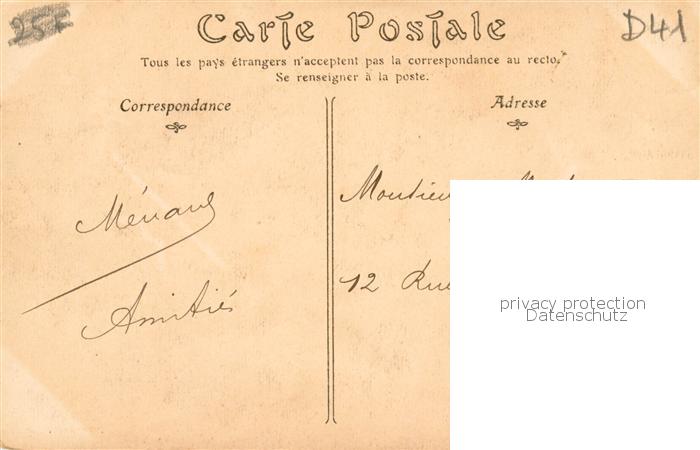 25F
D41
Carte Postale
Tous les pays étrangers n'acceptent pas la correspondance au recto.
Se renseigner à la poste.
Correspondance
Adresse
Amitiés
Monsieur
12 Rue
privacy protection
Datenschutz